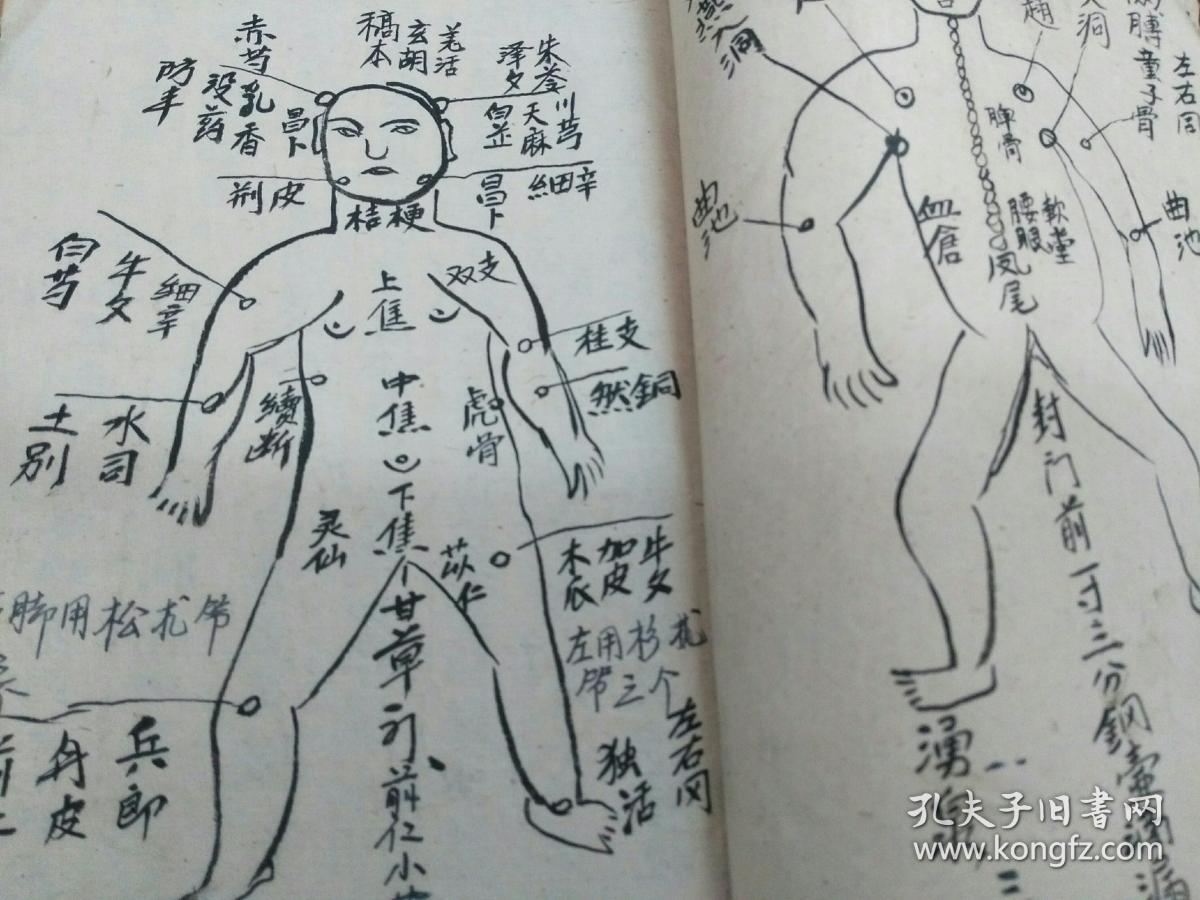 赤芍
乳香
没药
防丰
昌卜
稿本
玄胡
羌活
泽夕
朱苓
川芎
天麻
白芷
荆皮
昌卜
細辛
桔梗
白芍
牛夕
細辛
上焦
双支
桂支
然銅
土别
水司
續断
中焦
虎骨
下焦
灵仙
苡仁
加皮
牛夕
脚用松扎節
左用杉扎
節三个
左右同
独活
兵郎
丹皮
甘草
前仁小
童子骨
左右同
脾骨
曲池
血倉
腰眼
軟堂
鳳尾
曲池
封门前一寸三分
湧泉
孔夫子旧书网
www.kongfz.com